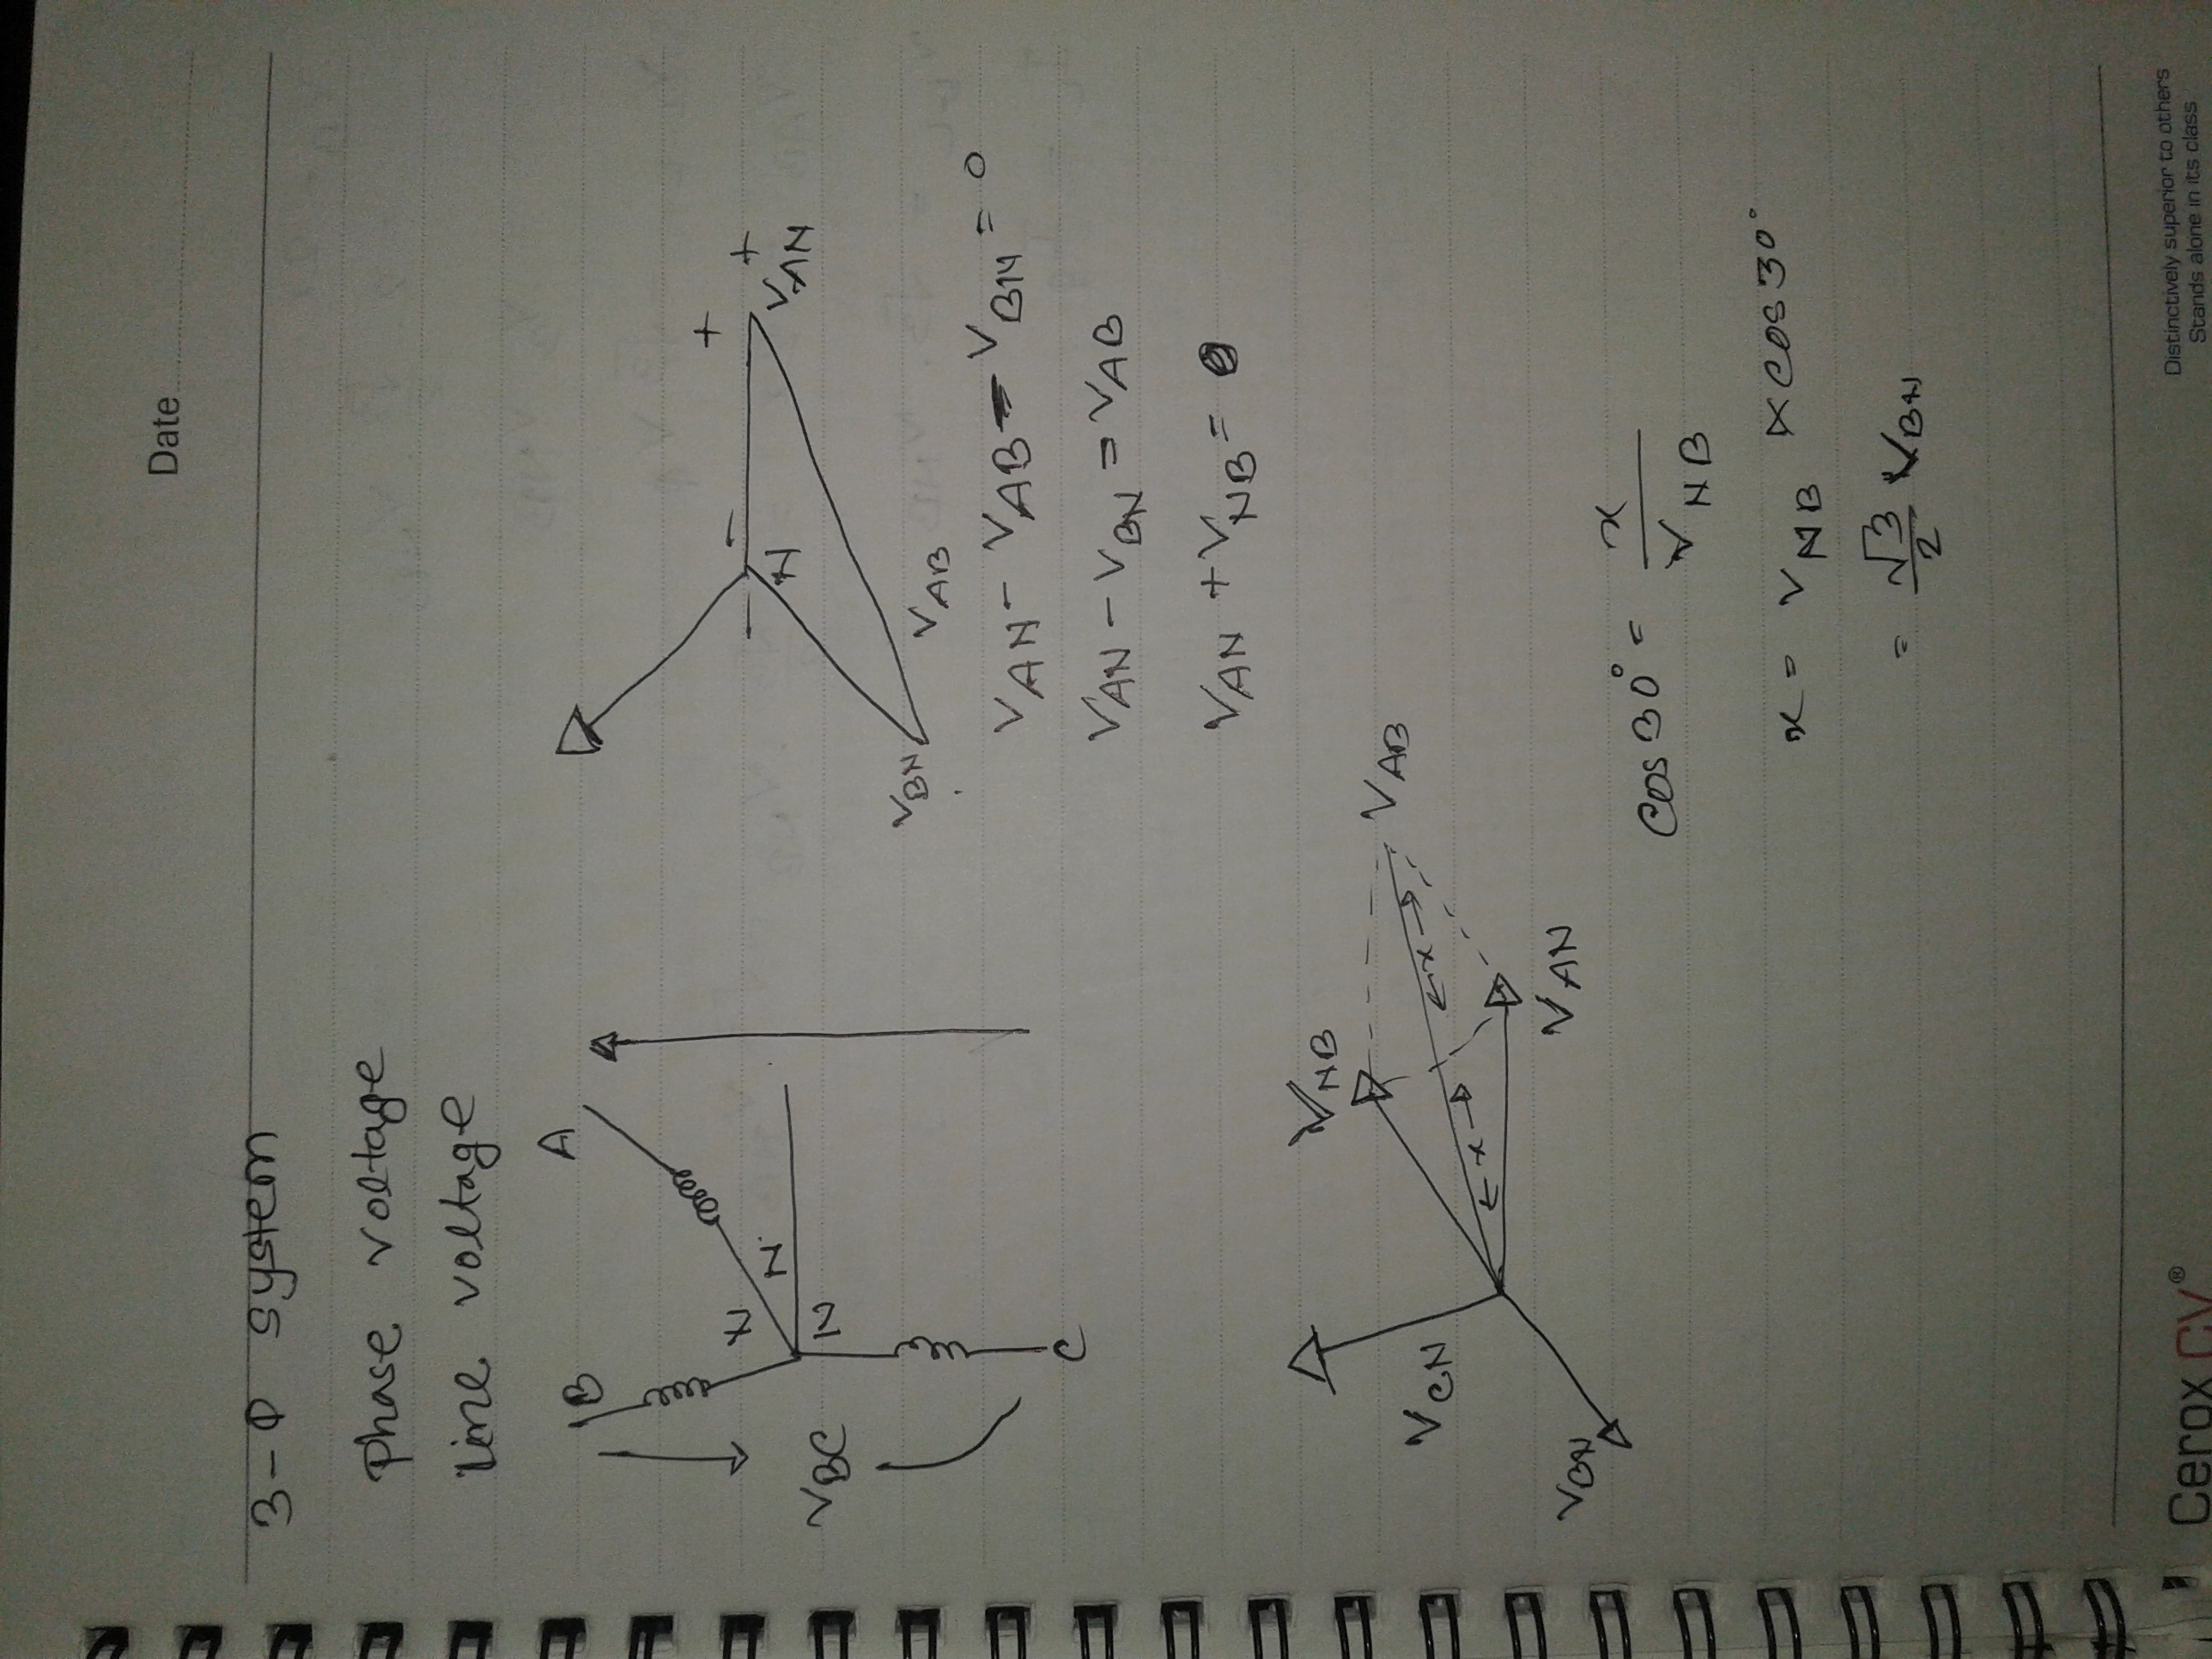 Date
3-Φ system
Phase voltage
Line voltage
B
A
N
N
N
V_BC
C
+
+
−
N
V_AN
V_BN
V_AB
V_AN - V_AB - V_BN = 0
V_AN - V_BN = V_AB
V_AN + V_NB =
V_NB
V_AB
V_CN
x
x
V_BN
V_AN
cos 30° = x / V_NB
x = V_NB × cos 30°
= √3/2 V_BN
Cerox CV®
Distinctively superior to others
Stands alone in its class